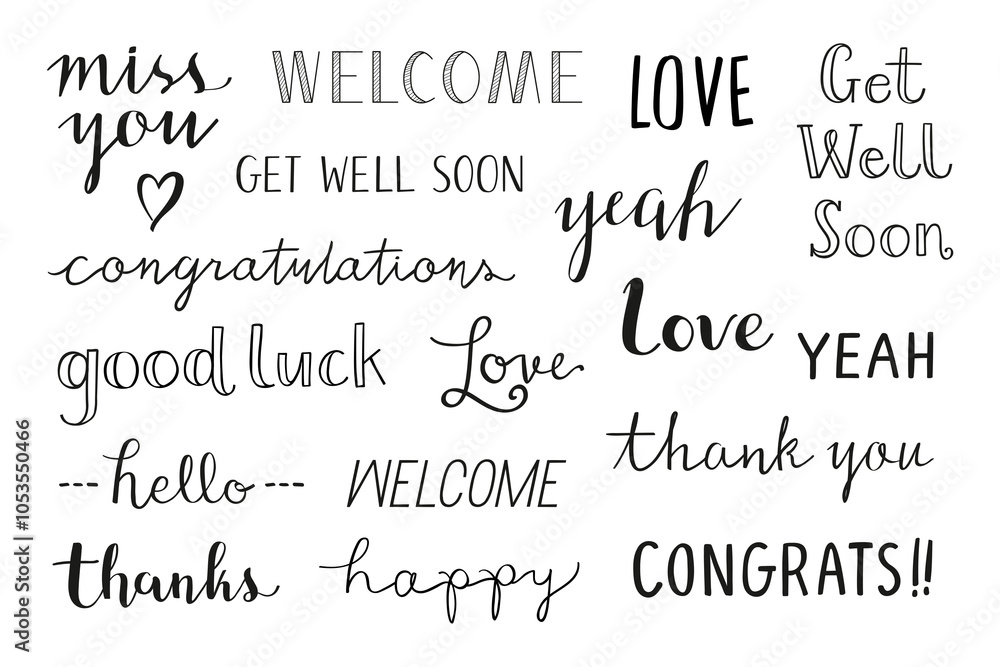 miss
you
WELCOME
LOVE
Get
Well
Soon
GET WELL SOON
yeah
congratulations
Love
good luck
Love
YEAH
thank you
--- hello ---
WELCOME
thanks
happy
CONGRATS!!
Adobe Stock | #1053550466